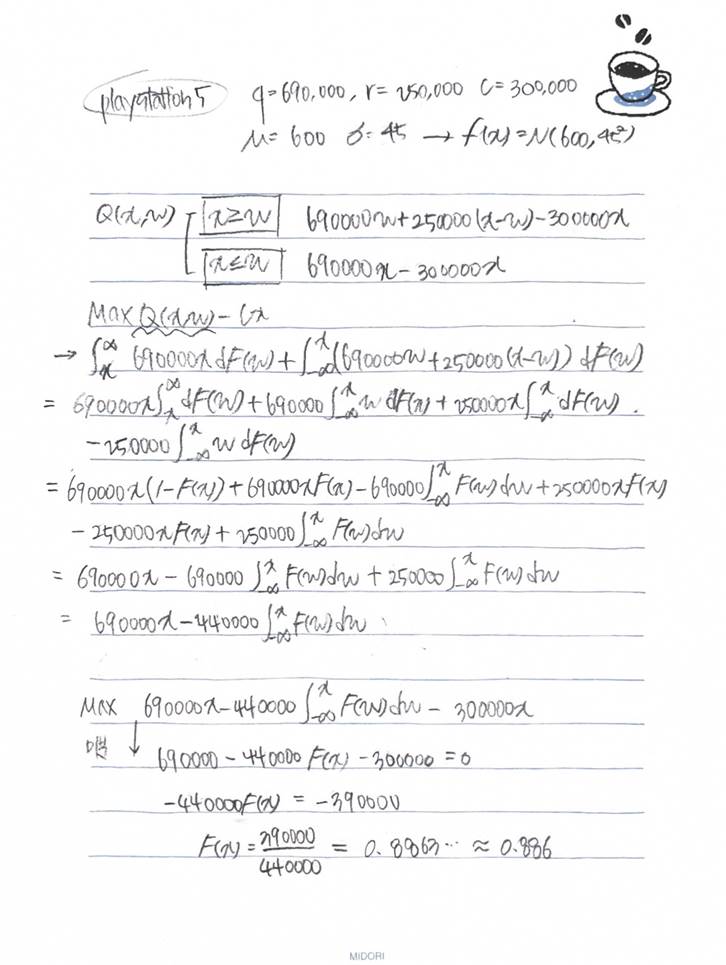 playstation 5
q=690,000, r=250,000 c=300,000
μ=600 σ=45 → f(x)=N(600,45²)
Q(x,w) x≥w 690000w+250000(x-w)-300000x
x≤w 690000x-300000x
Max Q(x,w)-Cx
→ ∫ₓ^∞ 690000x dF(w) + ∫₋∞^x (690000w+250000(x-w)) dF(w)
= 690000x∫ₓ^∞ dF(w) + 690000∫₋∞^x w dF(x) + 250000x∫₋∞^x dF(w).
-250000∫₋∞^x w dF(w)
= 690000x(1-F(x)) + 690000xF(x) - 690000∫₋∞^x F(w)dw + 250000xF(x)
- 250000xF(x) + 250000∫₋∞^x F(w)dw
= 690000x - 690000∫₋∞^x F(w)dw + 250000∫₋∞^x F(w)dw
= 690000x-440000∫₋∞^x F(w)dw
Max 690000x-440000∫₋∞^x F(w)dw - 300000x
미분 ↓ 690000-440000F(x)-300000=0
-440000F(x) = -390000
F(x) = 390000/440000 = 0.8863… ≈ 0.886
MIDORI